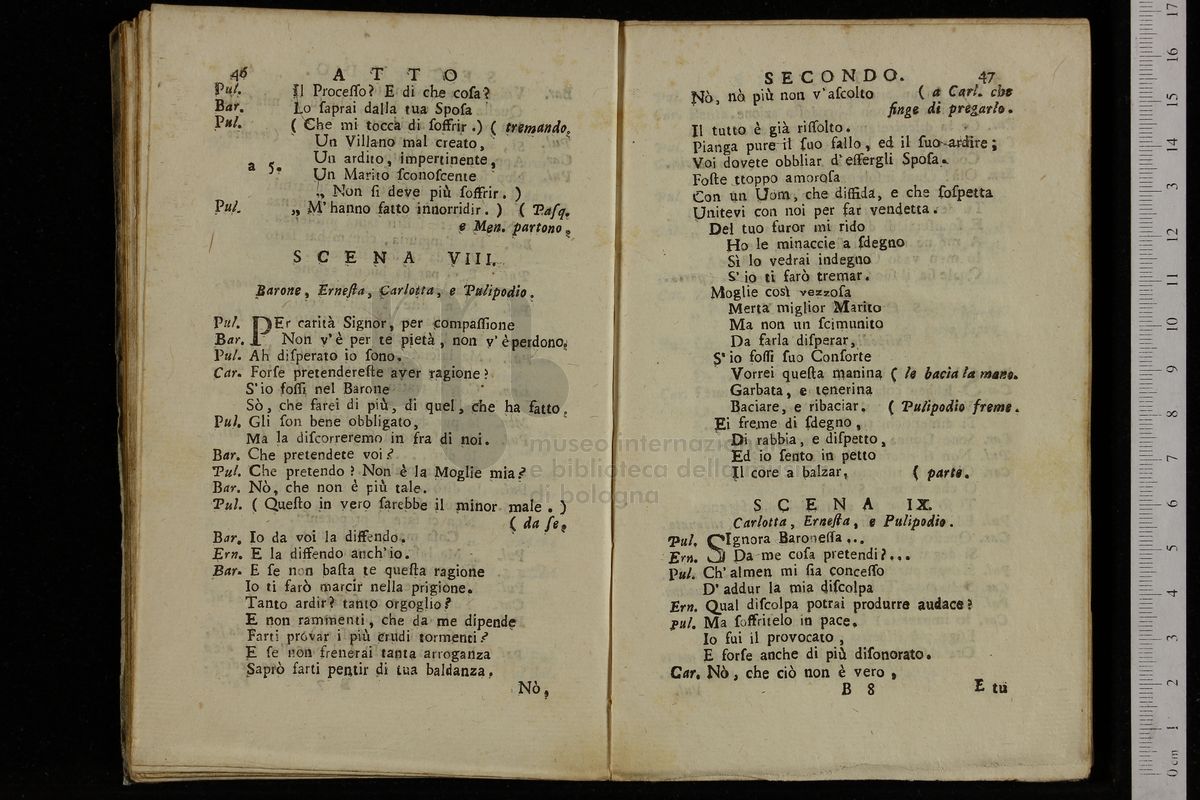 46 ATTO
Pul. Il Proceſſo? E di che coſa?
Bar. Lo ſaprai dalla tua Spoſa
Pul. ( Che mi tocca di ſoffrir .) ( tremando.
Un Villano mal creato,
Un ardito, impertinente,
a 5.
Un Marito ſconoſcente
„ Non ſi deve più ſoffrir. )
Pul. „ M'hanno fatto innorridir. ) ( Paſq.
e Men. partono.
SCENA VIII.
Barone, Erneſta, Carlotta, e Pulipodio.
Pul. PEr carità Signor, per compaſſione
Bar. Non v'è per te pietà, non v'è perdono.
Pul. Ah diſperato io ſono.
Car. Forſe pretendereſte aver ragione?
S'io foſſi nel Barone
Sò, che farei di più, di quel, che ha fatto.
Pul. Gli ſon bene obbligato,
Ma la diſcorreremo in fra di noi.
Bar. Che pretendete voi?
Pul. Che pretendo? Non è la Moglie mia?
Bar. Nò, che non è più tale.
Pul. ( Queſto in vero ſarebbe il minor male. )
( da ſe.
Bar. Io da voi la diffendo.
Ern. E la diffendo anch'io.
Bar. E ſe non baſta te queſta ragione
Io ti farò marcir nella prigione.
Tanto ardir? tanto orgoglio?
E non rammenti, che da me dipende
Farti próvar i più crudi tormenti?
E ſe non frenerai tanta arroganza
Saprò farti pentir di tua baldanza,
Nò,
SECONDO. 47
Nò, nò più non v'aſcolto ( a Carl. che
finge di pregarlo.
Il tutto è già riſſolto.
Pianga pure il ſuo fallo, ed il ſuo ardire;
Voi dovete obbliar d'eſſergli Spoſa.
Foſte ttoppo amoroſa
Con un Uom, che diffida, e che ſoſpetta
Unitevi con noi per far vendetta.
Del tuo furor mi rido
Ho le minaccie a ſdegno
Sì lo vedrai indegno
S'io ti farò tremar.
Moglie così vezzoſa
Merta miglior Marito
Ma non un ſcimunito
Da farla diſperar,
S'io foſſi ſuo Conſorte
Vorrei queſta manina ( le bacia la mano.
Garbata, e tenerina
Baciare, e ribaciar. ( Pulipodio freme.
Ei freme di ſdegno,
Di rabbia, e diſpetto,
Ed io ſento in petto
Il core a balzar, ( parte.
SCENA IX.
Carlotta, Erneſta, e Pulipodio.
Pul. SIgnora Baroneſſa...
Ern. Da me coſa pretendi?...
Pul. Ch'almen mi ſia conceſſo
D'addur la mia diſcolpa
Ern. Qual diſcolpa potrai produrre audace?
pul. Ma ſoffritelo in pace.
Io fui il provocato,
E forſe anche di più diſonorato.
Car. Nò, che ciò non è vero,
B 8 E tu
museo internazi
e biblioteca della
di bologna
0 cm 1 2 3 4 5 6 7 8 9 10 11 12 13 14 15 16 17